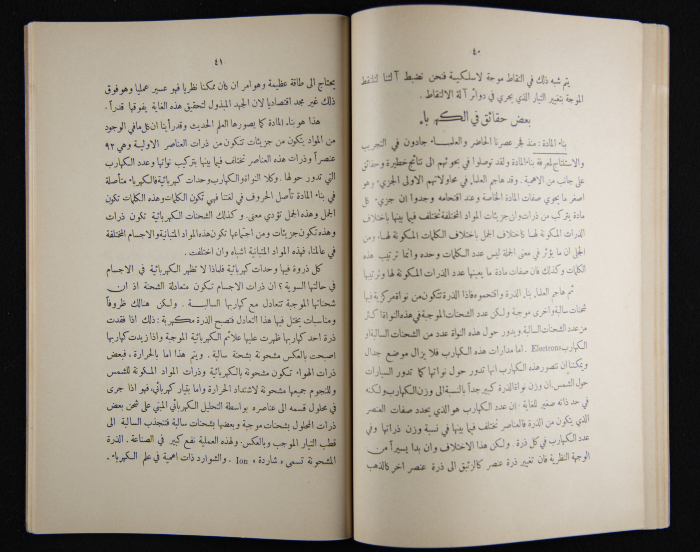 ٤٠
يتم شبه ذلك في التقاط موجة لاسلكية فنحن نضبط آلتنا لتلتقط
الموجة بتغيير التيار الذي يجري في دوائر آلة الالتقاط .
بعض حقائق في الكهرباء
بناء المادة : منذ فجر عصرنا الحاضر والعلماء جادون في التجريب
والاستنتاج لمعرفة بناء المادة ولقد توصلوا في بحوثهم الى نتائج خطيرة وحقائق
على جانب من الاهمية . وقد هاجم العلماء في محاولاتهم الاولى الجزيء وهو
اصغر ما يحوي صفات المادة الخاصة وعند اقتحامه وجدوا ان جزيء كل
مادة يتركب من ذرات وان جزيئات المواد المختلفة تختلف فيما بينها باختلاف
الذرات المكونة لها باختلاف الجمل باختلاف الكلمات المكونة لها ، ومن
الجلي ان ما يؤثر في معنى الجملة ليس عدد الكلمات وحده وانما ترتيب هذه
الكلمات وكذلك فان صفات مادة ما يعينها عدد الذرات المكونة لها وترتيبها
ثم هاجم العلماء بناء الذرة واقتحموه فاذا الذرة تتكون من نواة مركزية فيها
شحنات سالبة واخرى موجبة ولكن عدد الشحنات الموجبة في هذه النواة اكثر
من عدد الشحنات السالبة ويدور حول هذه النواة عدد من الشحنات السالبة او
الكهارب Electrons . اما مدارات هذه الكهارب فلا يزال موضع جدال
ويمكننا ان نتصور هذه الكهارب انها تدور حول نواتها كما تدور السيارات
حول الشمس . ان وزن نواة الذرة كبير جداً بالنسبة الى وزن الكهارب ولكنه
في حد ذاته صغير للغاية . ان عدد الكهارب هو الذي يحدد صفات العنصر
الذي يتكون من الذرة فالعناصر تختلف فيما بينها في نسبة وزن ذراتها وفي
عدد الكهارب في كل ذرة . ولكن هذا الاختلاف وان بدا يسيراً من
الوجهة النظرية فان تغيير ذرة عنصر كالزئبق الى ذرة عنصر آخر كالذهب
٤١
يحتاج الى طاقة عظيمة وهو امر ان كان ممكنا نظريا فهو عسير عمليا وهو فوق
ذلك غير مجد اقتصاديا لان الجهد المبذول لتحقيق هذه الغاية يفوقها قدراً .
هذا هو بناء المادة كما يصورها العلم الحديث وقد رأينا ان كل ما في الوجود
من المواد يتكون من جزيئات تتكون من ذرات العناصر الاولية وهي ٩٢
عنصراً وذرات هذه العناصر تختلف فيما بينها بتركيب نواتها وعدد الكهارب
التي تدور حولها . وكلا النواة والكهارب وحدات كهربائية فالكهرباء متأصلة
في بناء المادة تأصل الحروف في لغتنا فهي تكون الكلمات وهذه الكلمات تكون
الجمل وهذه الجمل تؤدي معنى . وكذلك الشحنات الكهربائية تكون ذرات
وهذه تكون جزيئات ومن اجتماعها تكون هذه المواد المتباينة والاجسام المختلفة
في عالمنا ، فهذه المواد المتباينة اشباه وان اختلفت .
كل ذروة فيها وحدات كهربائية فلماذا لا تظهر الكهربائية في الاجسام
في حالتها السوية ؟ ان ذرات الاجسام تكون متعادلة الشحنة اذ ان
شحناتها الموجبة تتعادل مع كهاربها السالبة . ولكن هنالك ظروفاً
ومناسبات يختل فيها هذا التعادل فتصبح الذرة مكهربة : ذلك اذا فقدت
ذرة احد كهاربها ظهرت عليها علائم الكهربائية الموجبة واذا زيدت كهاربها
اصبحت بالعكس مشحونة بشحنة سالبة . ويتم هذا اما بالحرارة ، فبعض
ذرات الهواء تكون مشحونة بالكهربائية وذرات المواد المكونة للشمس
وللنجوم جميعها مشحونة لاشتداد الحرارة واما بتيار كهربائي ، فهو اذا جرى
في محلول قسمه الى عناصره بواسطة التحليل الكهربائي المبني على شحن بعض
ذرات المحلول بشحنات موجبة وبعضها بشحنات سالبة فتنجذب السالبة الى
قطب التيار الموجب وبالعكس . ولهذه العملية نفع كبير في الصناعة . الذرة
المشحونة تسمى « شاردة » Ion . والشوارد ذات اهمية في علم الكهرباء .